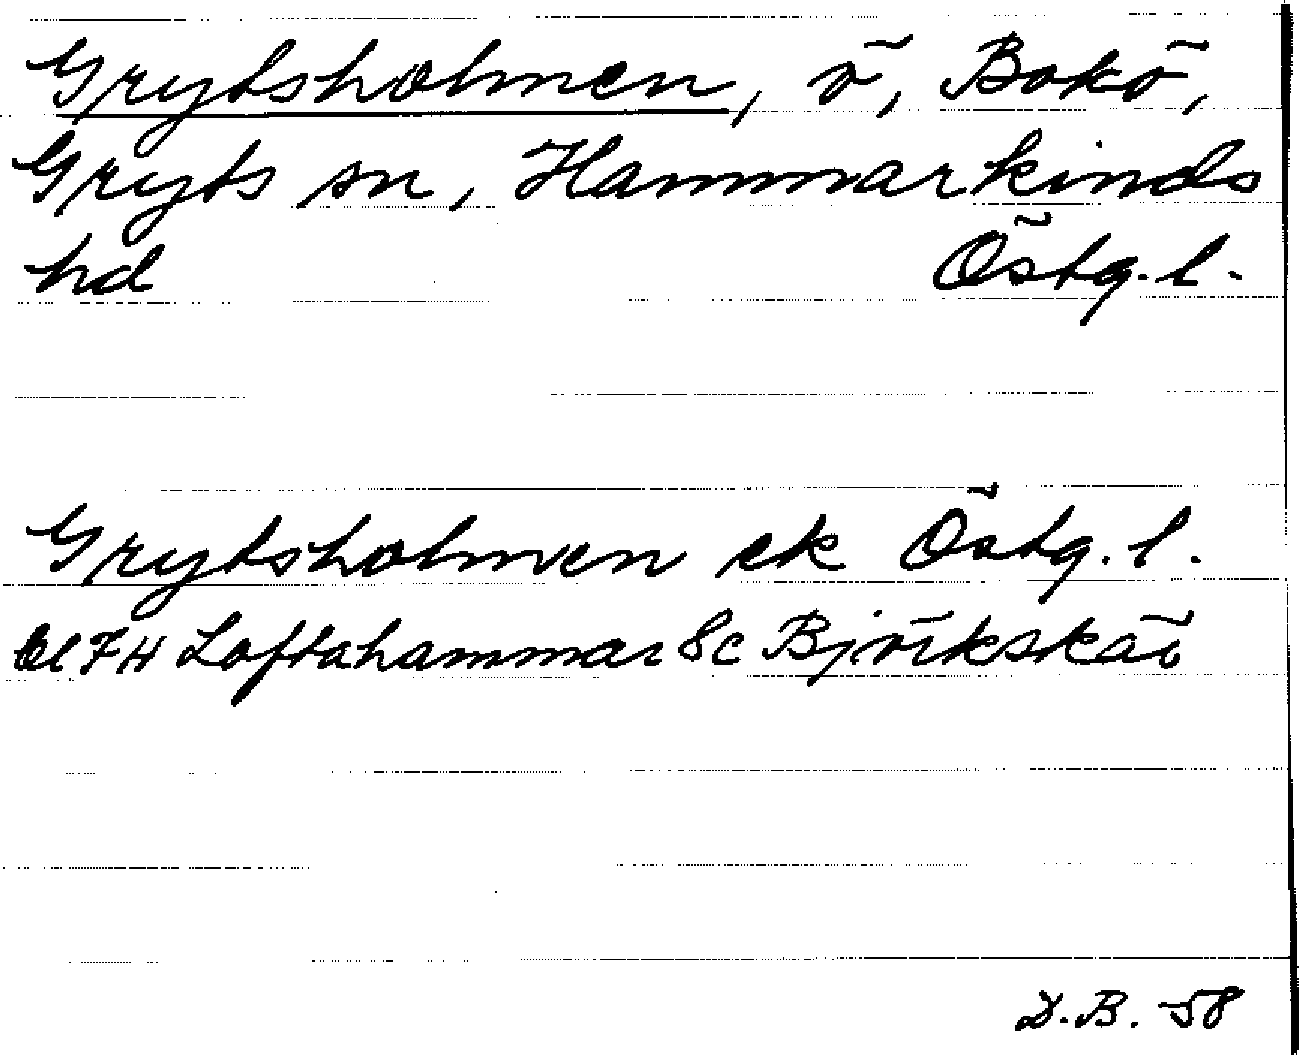 Grytsholmen, ö, Bokö,
Gryts sn, Hammarkinds
hd Östg. l.
Grytsholmen ek Östg. l.
Bl 7H Loftahammar Sc Björkskär
D.B. -58